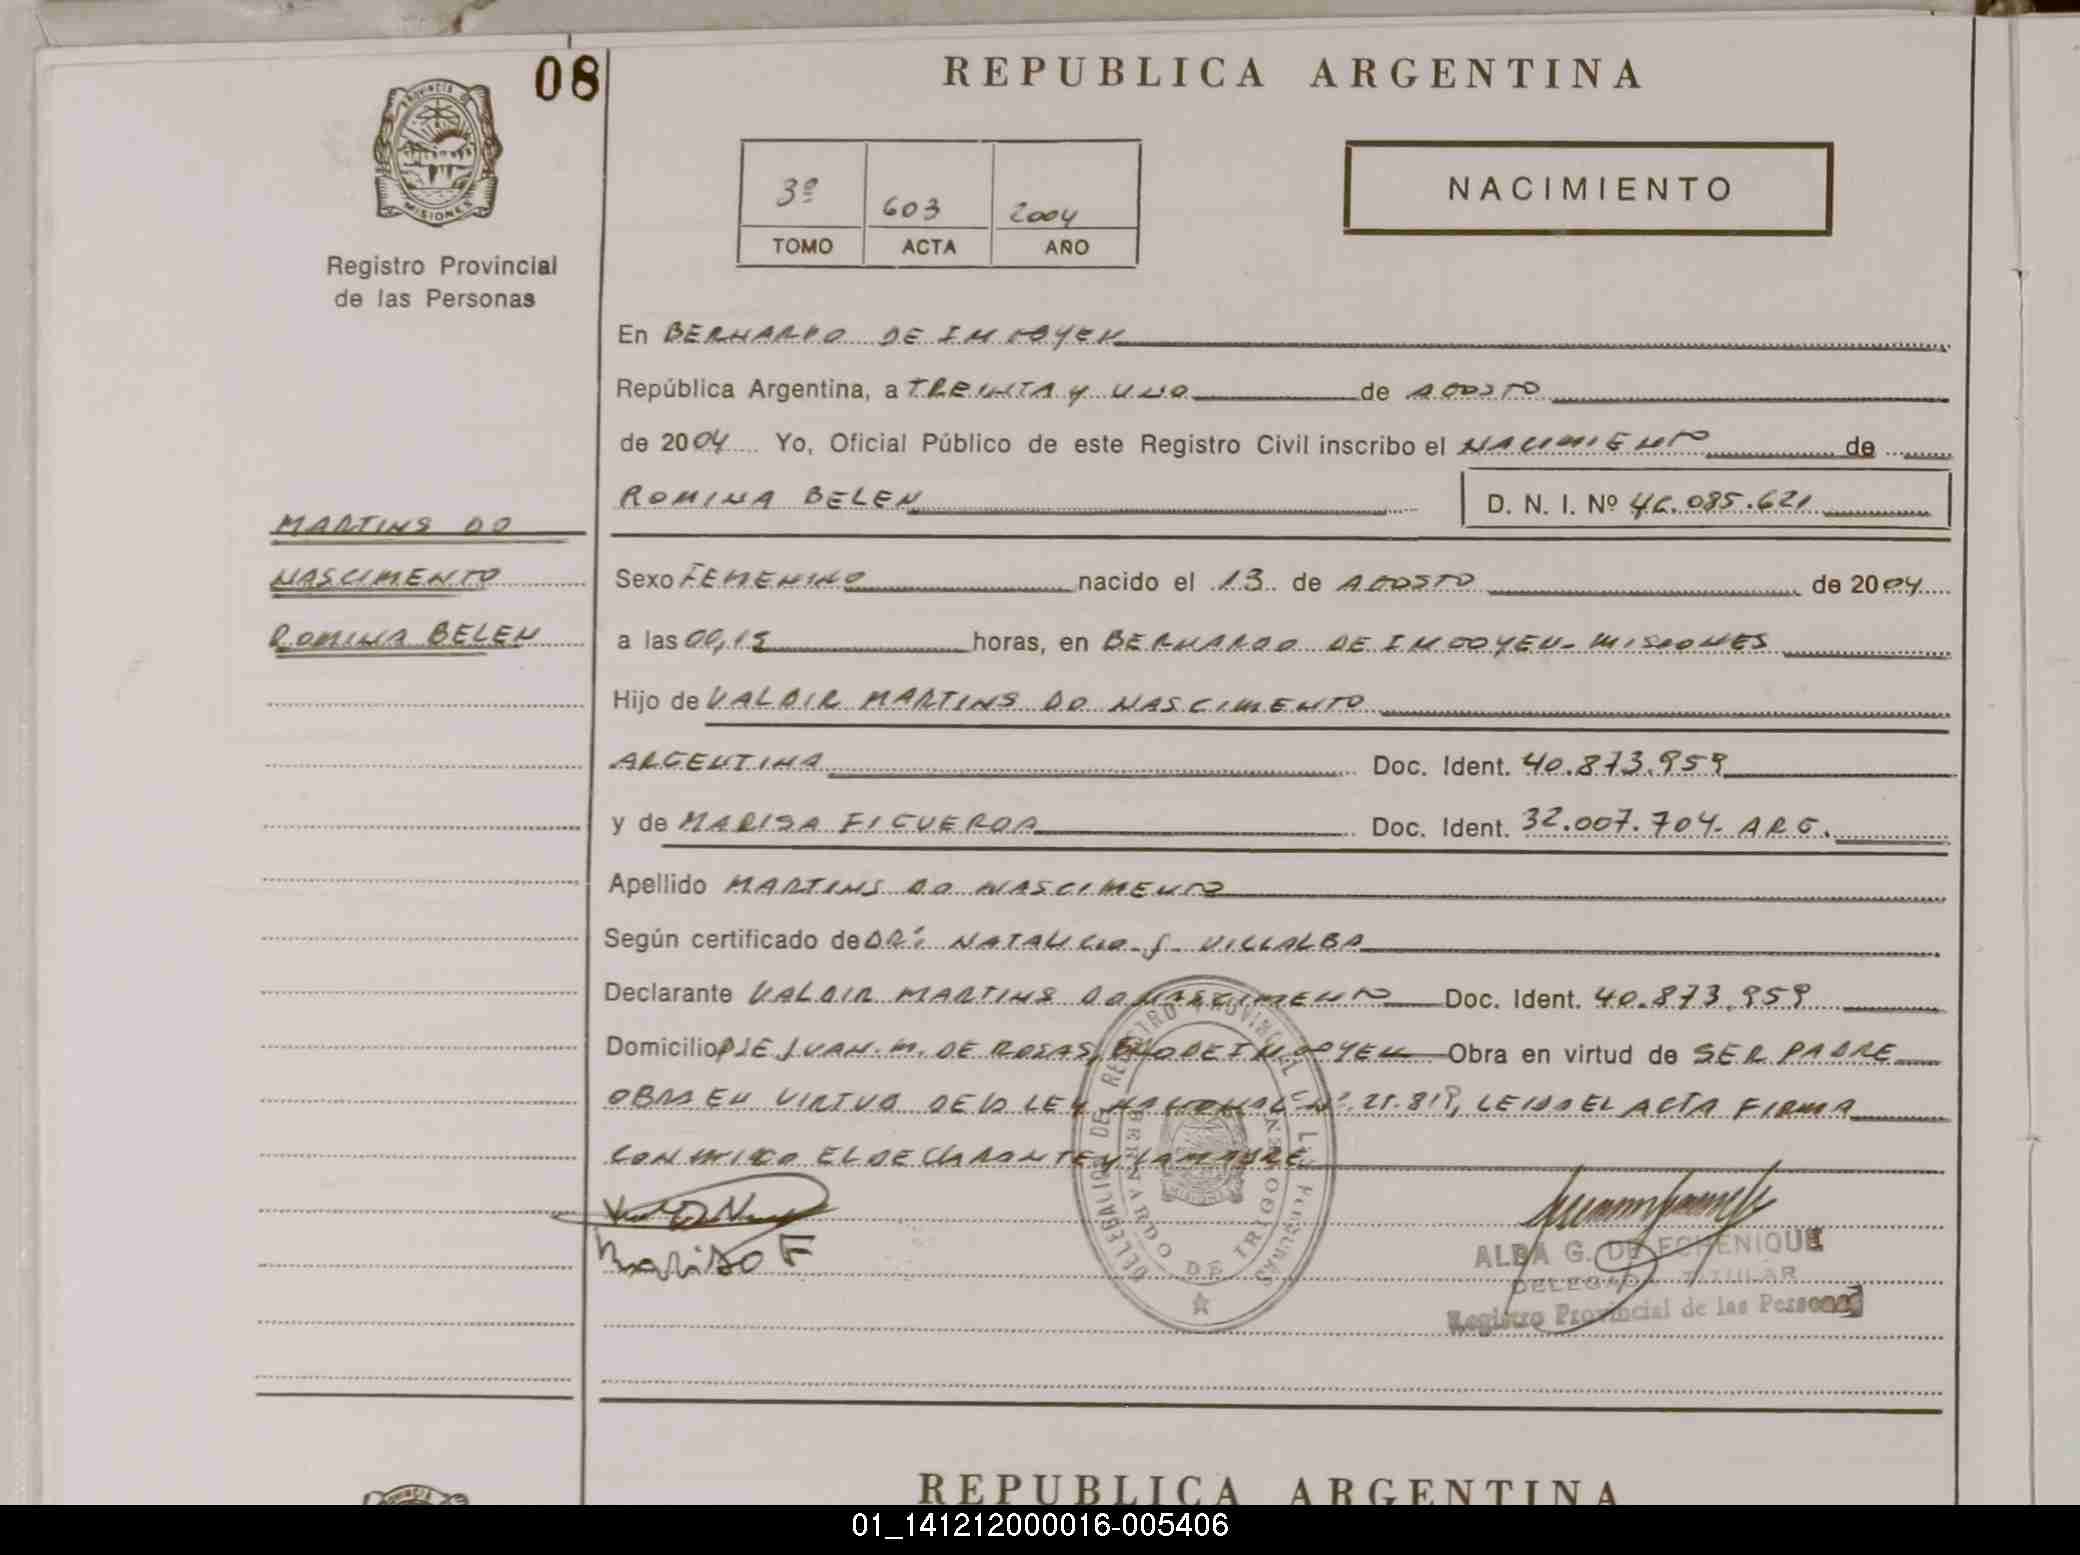 08
REPUBLICA ARGENTINA
PROVINCIA DE
MISIONES
Registro Provincial
de las Personas
3º 603 2004
TOMO ACTA AÑO
NACIMIENTO
En BERNARDO DE IRIGOYEN
República Argentina, a TREINTA y UNO de AGOSTO
de 2004 Yo, Oficial Público de este Registro Civil inscribo el NACIMIENTO de
ROMINA BELEN D. N. I. Nº 46.085.621
MARTINS DO
NASCIMENTO
ROMINA BELEN
Sexo FEMENINO nacido el 13 de AGOSTO de 2004
a las 00,15 horas, en BERNARDO DE IRIGOYEN - MISIONES
Hijo de VALDIR MARTINS DO NASCIMENTO
ARGENTINA Doc. Ident. 40.873.959
y de MARISA FIGUEROA Doc. Ident. 32.007.704. ARG.
Apellido MARTINS DO NASCIMENTO
Según certificado de DR: NATALICIO - J - VILLALBA
Declarante VALDIR MARTINS DO NASCIMENTO Doc. Ident. 40.873.959
Domicilio PJE JUAN. M. DE ROSAS, BDO DE IRIGOYEN Obra en virtud de SER PADRE
OBRA EN VIRTUD DE LA LEY NACIONAL Nº 25.819, LEIDA EL ACTA FIRMA
CONMIGO EL DECLARANTE y LA MADRE
Marisa F
DELEGACION DEL REGISTRO PROVINCIAL DE LAS PERSONAS
BERNARDO DE IRIGOYEN
MISIONES
ALBA G. DE ECHENIQUE
DELEGADA TITULAR
Registro Provincial de las Personas
REPUBLICA ARGENTINA
01_141212000016-005406